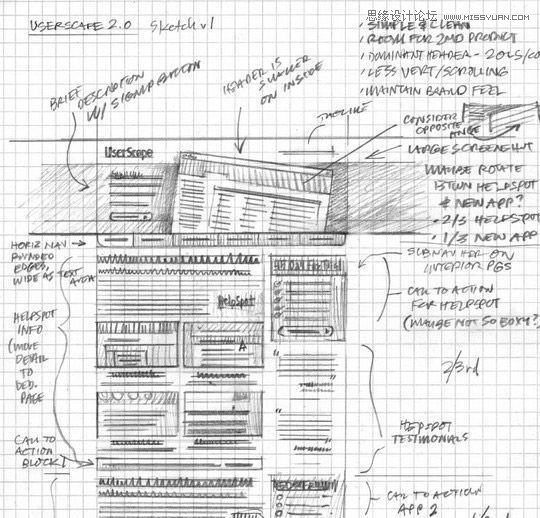 思缘设计论坛 WWW.MISSYUAN.COM
USERSCAPE 2.0 SKETCH V1
SIMPLE & CLEAN
ROOM FOR 2ND PRODUCT
DOMINANT HEADER - 20LS/CO
LESS VERT/SCROLLING
MAINTAIN BRAND FEEL
BRIEF DESCRIPTION
W/ SIGNUP BUTTON
HEADER IS
SMALLER
ON INSIDE
TAGLINE
CONSIDER
OPPOSITE
ANGLE
UserScape
LARGE SCREENSHOT
MAYBE ROTATE
BTWN HELPSPOT
& NEW APP?
2/3 HELPSPOT
1/3 NEW APP
HORIZ NAV
ROUNDED
EDGES,
WIDE AS TEXT
AREA
SUBNAV HER ON
INTERIOR PGS
CALL TO ACTION
FOR HELPSPOT
(MAYBE NOT SO BOXY?)
HelpSpot
HELPSPOT
INFO
(MOVE
DETAIL
TO
DED.
PAGE
2/3rd
HELPSPOT
TESTIMONIALS
CALL TO
ACTION
BLOCK
CALL TO ACTION
APP 2